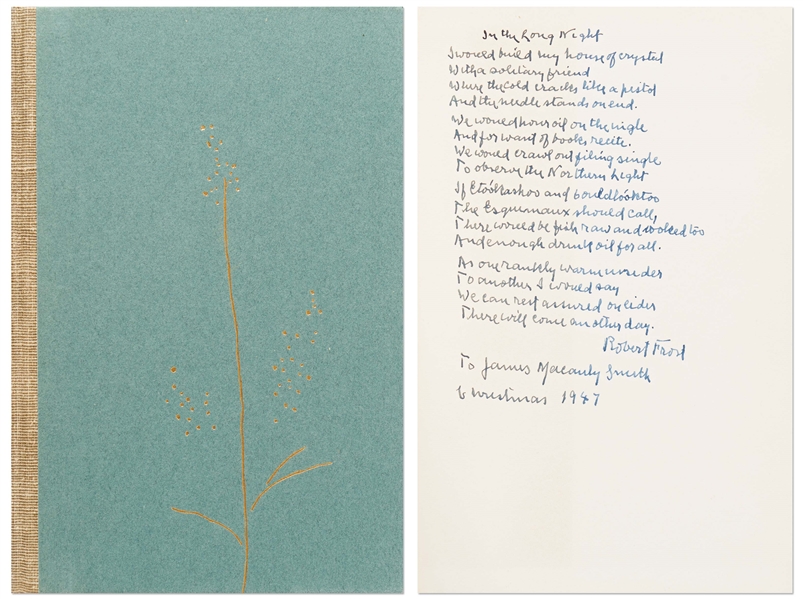 In the Long Night
I would build my house of crystal
With a solitary friend
Where the cold cracks like a pistol
And the needle stands on end.
We would pour oil on the ingle
And for want of books recite.
We would crawl out filing single
To observe the Northern Light
If Etóokashoo and Couldlóoktoo
The Esquimaux should call,
There would be fish raw and cooked too
And enough drink oil for all.
As one rankly warm insider
To another I would say
We can rest assured on eider
There will come another day.
Robert Frost
To James Macauly Smith
Christmas 1947